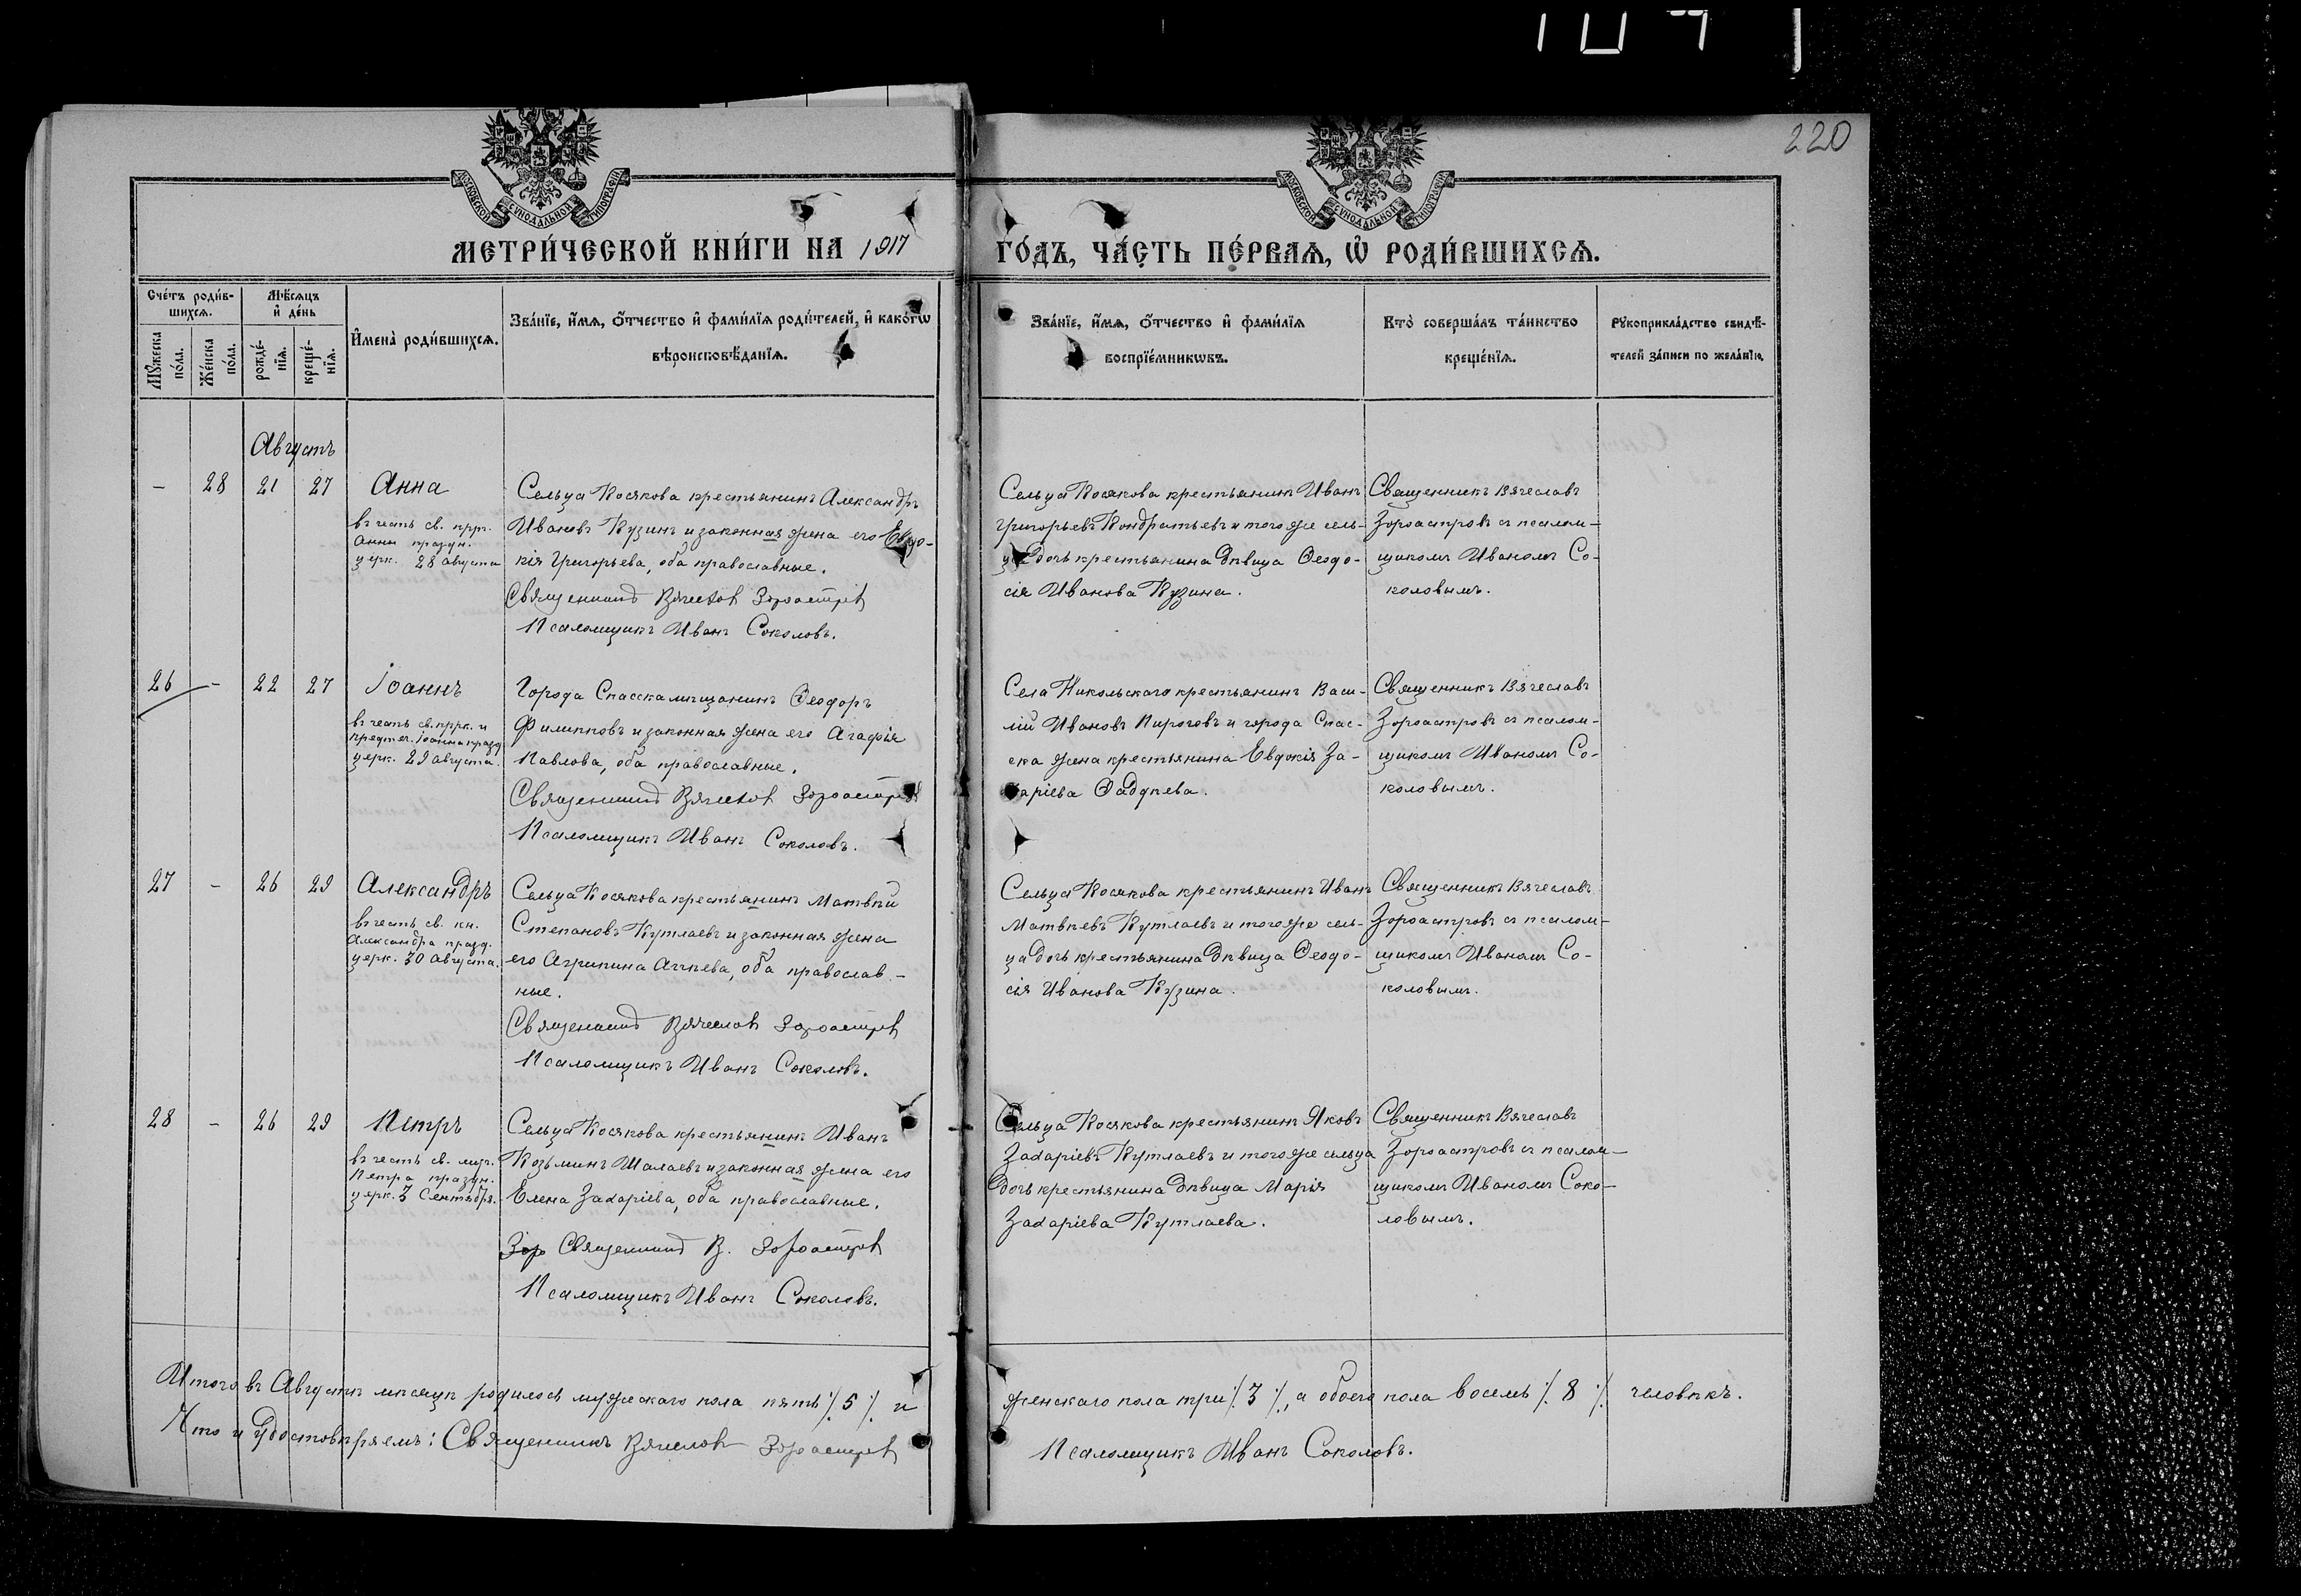 220
МОСКОВСКОЙ СѴНОДАЛЬНОЙ ТИПОГРАФІИ
МОСКОВСКОЙ СѴНОДАЛЬНОЙ ТИПОГРАФІИ
МЕТРИ́ЧЕСКОЙ КНИ́ГИ НА 1917 ГО́ДЪ, ЧА́СТЬ ПЕ́РВАѦ, Ѡ РОДИ́ВШИХСѦ.
Сче́тъ роди́в-
шихсѧ.
Мꙋжеска
по́ла.
Же́нска
по́ла.
Мѣ́сѧцъ
и҆ де́нь
рожде́-
нїѧ.
креще́-
нїѧ.
И҆мена̀ роди́вшихсѧ.
Зва́нїе, и҆́мѧ, ѻ҆́тчество и҆ фами́лїѧ роди́телей, и҆ како́гѡ
вѣроисповѣ́данїѧ.
Зва́нїе, и҆́мѧ, ѻ҆́тчество и҆ фами́лїѧ
воспрїе́мникѡвъ.
Кто̀ соверша́лъ та́инство
креще́нїѧ.
Рꙋкоприкла́дство свидѣ́-
телей за́писи по жела́нїю.
Августъ
– 28 21 27 Анна
въ честь св. прр.
Анны праздн.
церк. 28 августа
Сельца Косякова крестьянинъ Александръ
Ивановъ Кузинъ и законная жена его Евдо-
кія Григорьева, оба православные.
Священникъ Вячеслав Зороастров
Псаломщикъ Иванъ Соколовъ.
Сельца Косякова крестьянинъ Иванъ
Григорьевъ Кондратьевъ и того же сель-
ца дочь крестьянина дѣвица Ѳеодо-
сія Иванова Кузина.
Священникъ Вячеславъ
Зороастровъ съ псалом-
щикомъ Иваномъ Со-
коловымъ.
26 – 22 27 Іоаннъ
въ честь св. прр. и
предтеч. Іоанна празд.
церк. 29 августа.
Города Спасска мѣщанинъ Ѳеодоръ
Филипповъ и законная жена его Агафія
Павлова, оба православные.
Священникъ Вячеслав Зороастров
Псаломщикъ Иванъ Соколовъ.
Села Никольскаго крестьянинъ Васи-
лій Ивановъ Пироговъ и города Спас-
ска жена крестьянина Евдокія За-
харіева Ѳадѣева.
Священникъ Вячеславъ
Зороастровъ съ псалом-
щикомъ Иваномъ Со-
коловымъ.
27 – 26 29 Александръ
въ честь св. кн.
Александра празд.
церк. 30 августа.
Сельца Косякова крестьянинъ Матвѣй
Степановъ Кутлаевъ и законная жена
его Агрипина Агѣева, оба православ-
ные.
Священникъ Вячеслав Зороастров
Псаломщикъ Иванъ Соколовъ.
Сельца Косякова крестьянинъ Иванъ
Матвѣевъ Кутлаевъ и того же сель-
ца дочь крестьянина дѣвица Ѳеодо-
сія Иванова Кузина.
Священникъ Вячеславъ
Зороастровъ съ псалом-
щикомъ Иваномъ Со-
коловымъ.
28 – 26 29 Петръ
въ честь св. муч.
Петра праздн.
церк. 3 Сентября.
Сельца Косякова крестьянинъ Иванъ
Козьминъ Шалаевъ и законная жена его
Елена Захаріева, оба православные.
Зоро Священникъ В. Зороастров
Псаломщикъ Иванъ Соколовъ.
Сельца Косякова крестьянинъ Яковъ
Захаріевъ Кутлаевъ и того же сельца
дочь крестьянина дѣвица Марія
Захаріева Кутлаева.
Священникъ Вячеславъ
Зороастровъ съ псалом-
щикомъ Иваномъ Соко-
ловымъ.
Итого въ Августѣ мѣсяцѣ родилось мужескаго пола пять ⁒ 5 ⁒ и женскаго пола три ⁒ 3 ⁒, а обоего пола восемь ⁒ 8 ⁒ человѣкъ.
Что и удостовѣряемъ: Священникъ Вячеслав Зороастров Псаломщикъ Иванъ Соколовъ.